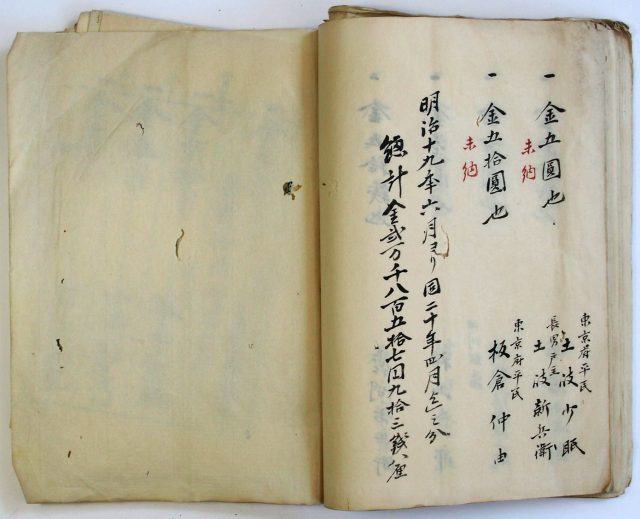 一 金五圓也
未納
東京府平民
土波少眠
長男戸主
土波新兵衛
一 金五拾圓也
未納
東京府平民
板倉仲由
明治十九年六月ヨリ同二十年四月迄之分
総計金弐万千八百五拾七円九拾三銭八厘